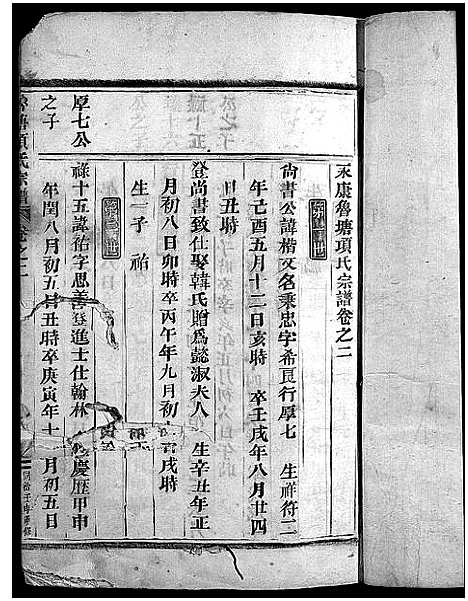 永康魯塘項氏宗譜卷之二
尙書公諱楷又名秉忠字希良行厚七 生祥符二
年己酉五月十二日亥時 卒壬戌年八月廿四
日丑時
登尚書致仕娶韓氏贈爲懿淑夫人 生辛丑年正
月初八日卯時卒丙午年九月初 戌時
生一子 祐
厚七公
之子
祿十五諱祐字思善登進士仕翰林 慶歷甲申
年閏八月初五日丑時卒庚寅年十 月初五日
項氏宗譜 卷之二